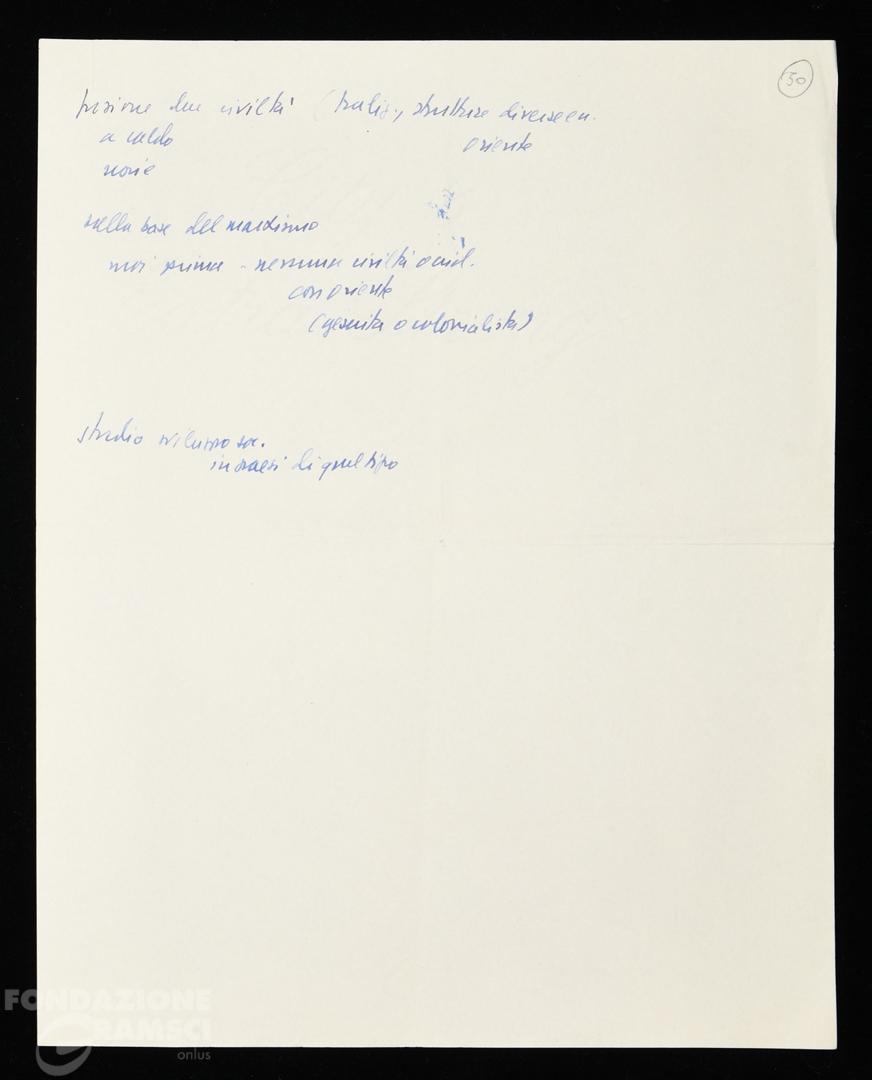 50
fusione due civiltà (traliz., strutture diverse ec.
a caldo oriente
nasce
nella base del marxismo
noi prima - nessuna civiltà occid.
con oriente
(gesuita o colonialista)
studio sviluppo soc.
in paesi di quel tipo
FONDAZIONE
GRAMSCI
onlus